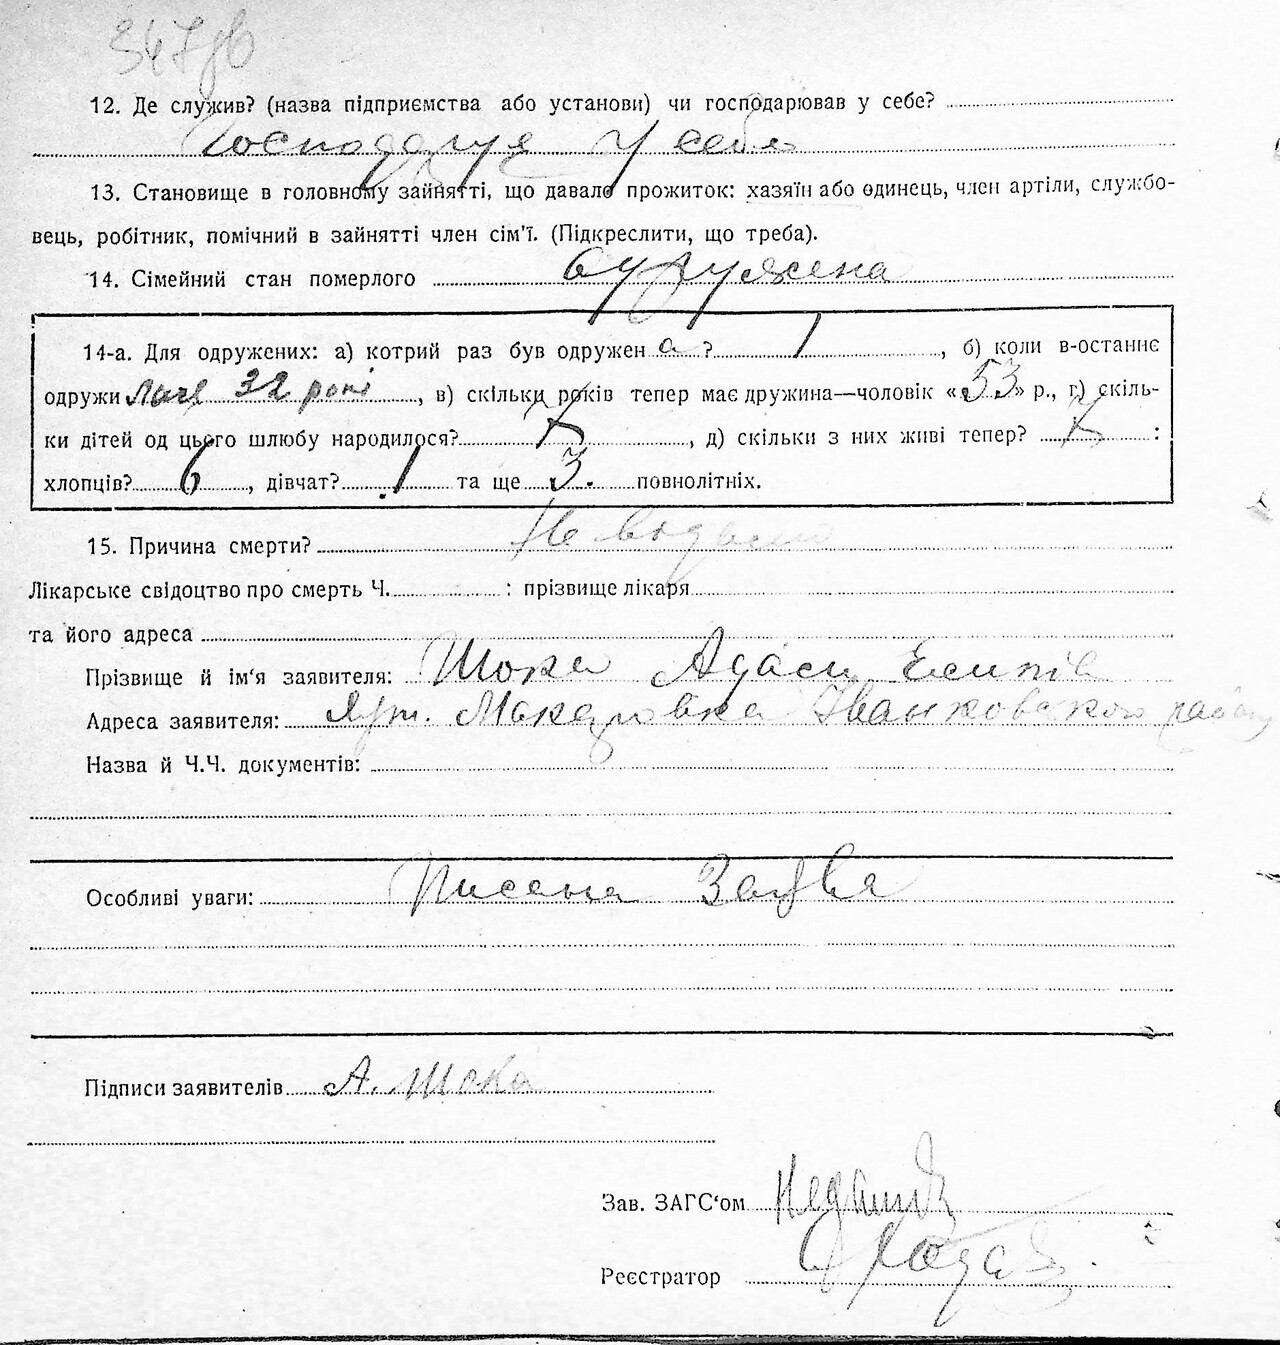 347зв
12. Де служив? (назва підприємства або установи) чи господарював у себе?
Господарує у себе
13. Становище в головному зайнятті, що давало прожиток: хазяїн або одинець, член артіли, службо-
вець, робітник, помічний в зайнятті член сім'ї. (Підкреслити, що треба).
14. Сімейний стан померлого одружена
14-а. Для одружених: а) котрий раз був одружен а ? 1, б) коли в-останнє
одружилася 32 рокі, в) скільки років тепер має дружина—чоловік «53» р., г) скіль-
ки дітей од цього шлюбу народилося? 7, д) скільки з них живі тепер? 7 :
хлопців? 6, дівчат? 1 та ще 3. повнолітніх.
15. Причина смерти? Не
Лікарське свідоцтво про смерть Ч. : прізвище лікаря
та його адреса
Прізвище й ім'я заявителя: Шока Адам
Адреса заявителя: Хут. Макаровка Іванковского району
Назва й Ч.Ч. документів:
Особливі уваги: Писана Заява
Підписи заявителів А. Шока
Зав. ЗАГС'ом
Реєстратор